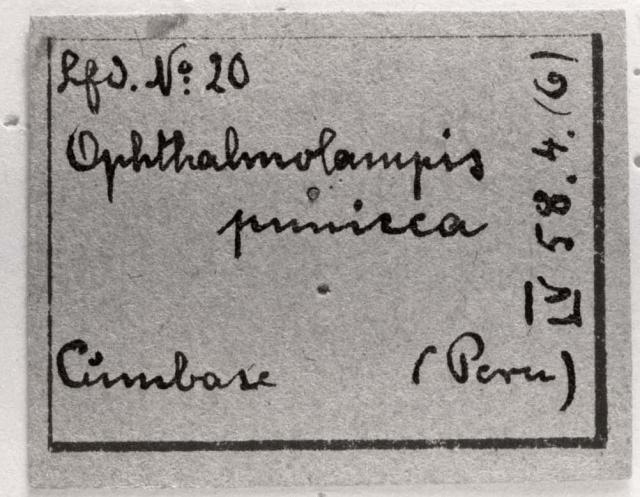 Lfd. No: 20
Ophthalmolampis
punicea
Cumbase (Peru)
IV 58.4.(6)